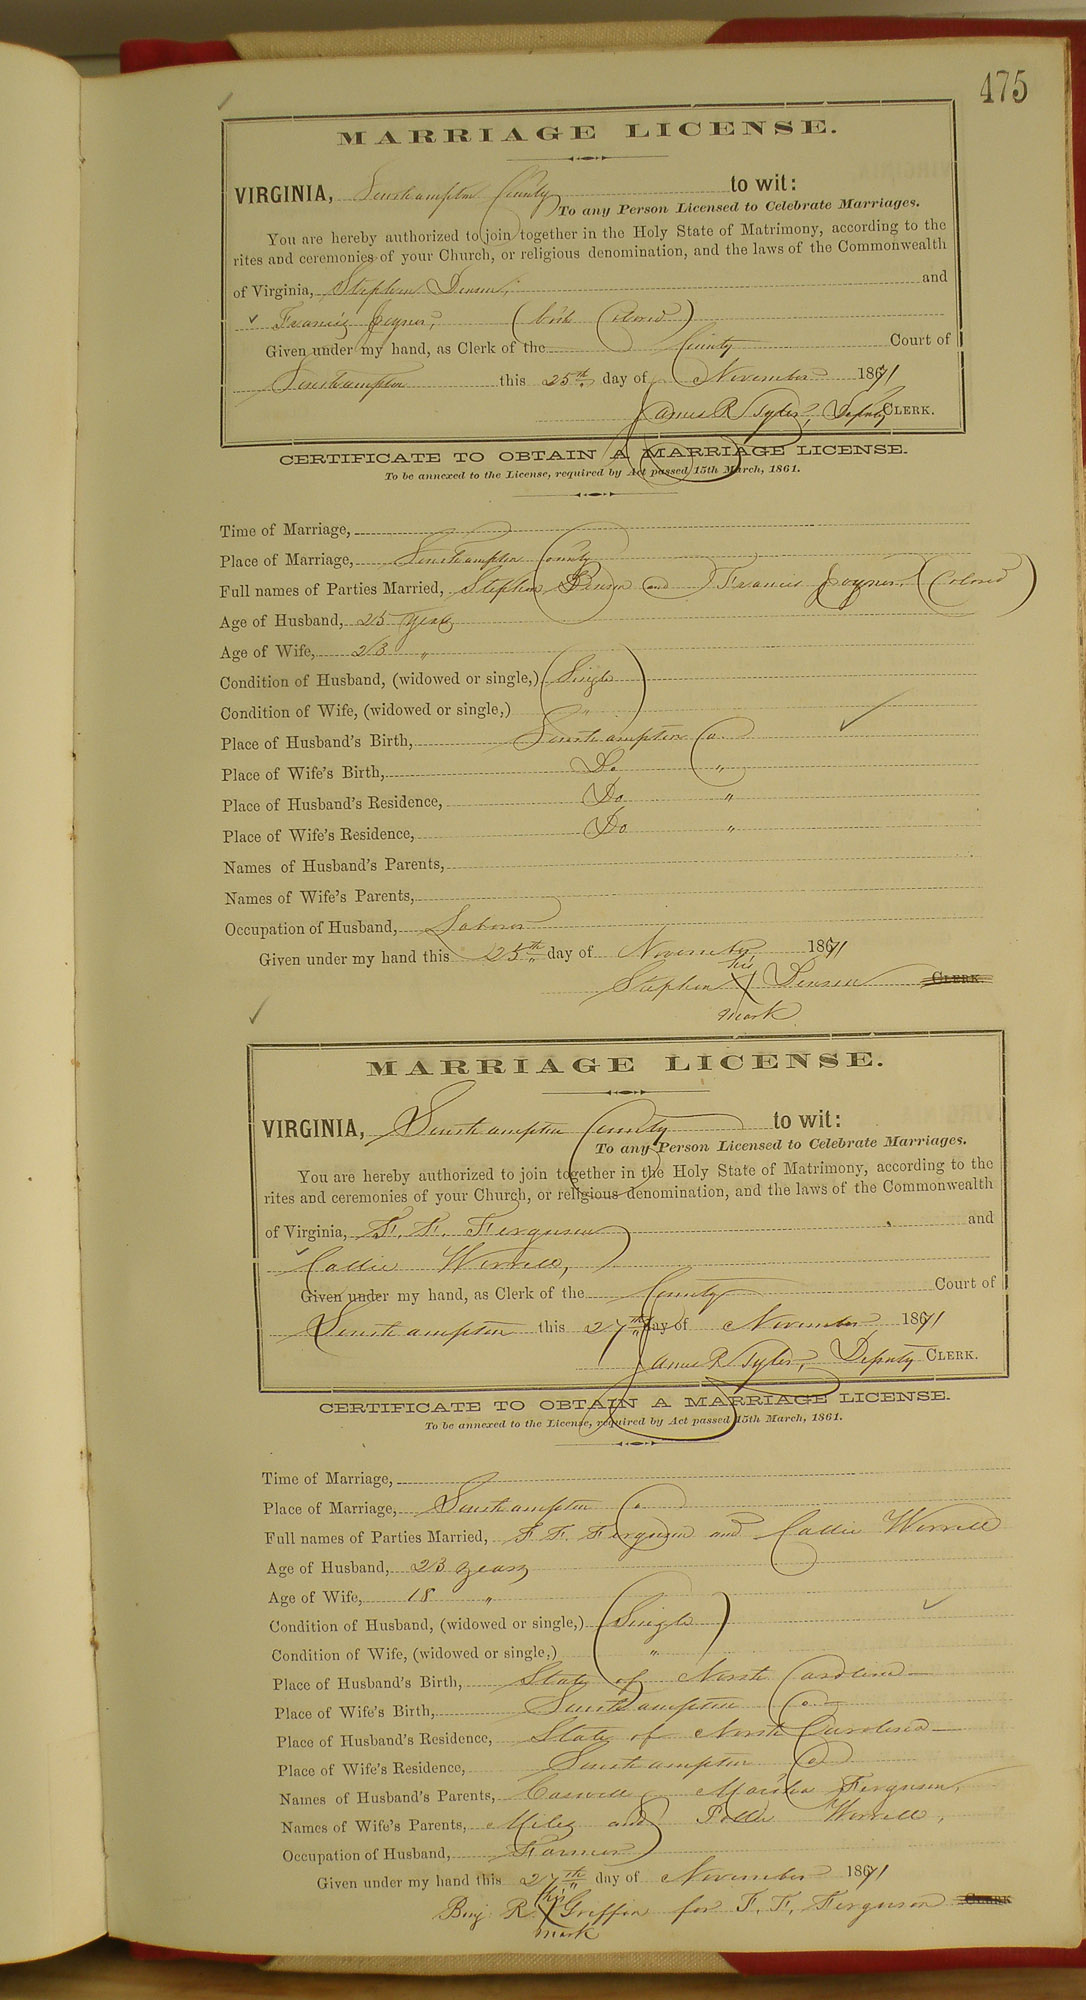 475
MARRIAGE LICENSE.
VIRGINIA, Southampton County to wit:
To any Person Licensed to Celebrate Marriages.
You are hereby authorized to join together in the Holy State of Matrimony, according to the
rites and ceremonies of your Church, or religious denomination, and the laws of the Commonwealth
of Virginia, Stephen Denson, and
Francis Joyner, (both Colored)
Given under my hand, as Clerk of the County Court of
Southampton this 25th day of November 1871
James R Tyler, Deputy CLERK.
CERTIFICATE TO OBTAIN A MARRIAGE LICENSE.
To be annexed to the License, required by Act passed 15th March, 1861.
Time of Marriage,
Place of Marriage, Southampton County
Full names of Parties Married, Stephen Denson and Francis Joyner. (Colored)
Age of Husband, 25 years
Age of Wife, 23 "
Condition of Husband, (widowed or single,) (Single)
Condition of Wife, (widowed or single,) "
Place of Husband's Birth, Southampton Co.
Place of Wife's Birth, Do "
Place of Husband's Residence, Do "
Place of Wife's Residence, Do "
Names of Husband's Parents,
Names of Wife's Parents,
Occupation of Husband, Laborer
Given under my hand this 25th day of November 1871
his
Stephen X Denson CLERK.
mark
MARRIAGE LICENSE.
VIRGINIA, Southampton County to wit:
To any Person Licensed to Celebrate Marriages.
You are hereby authorized to join together in the Holy State of Matrimony, according to the
rites and ceremonies of your Church, or religious denomination, and the laws of the Commonwealth
of Virginia, F. F. Ferguson and
Callie Worrell,
Given under my hand, as Clerk of the County Court of
Southampton this 27th day of November 1871
James R Tyler, Deputy CLERK.
CERTIFICATE TO OBTAIN A MARRIAGE LICENSE.
To be annexed to the License, required by Act passed 15th March, 1861.
Time of Marriage,
Place of Marriage, Southampton Co.
Full names of Parties Married, F. F. Ferguson and Callie Worrell
Age of Husband, 23 years
Age of Wife, 18 "
Condition of Husband, (widowed or single,) (Single)
Condition of Wife, (widowed or single,) "
Place of Husband's Birth, State of North Carolina
Place of Wife's Birth, Southampton Co.
Place of Husband's Residence, State of North Carolina
Place of Wife's Residence, Southampton Co
Names of Husband's Parents, Ferguson,
Names of Wife's Parents, Miles and Pollie Worrell,
Occupation of Husband, Farmer
Given under my hand this 27th day of November 1871
his
Benj R. X Griffin for F. F. Ferguson CLERK
mark